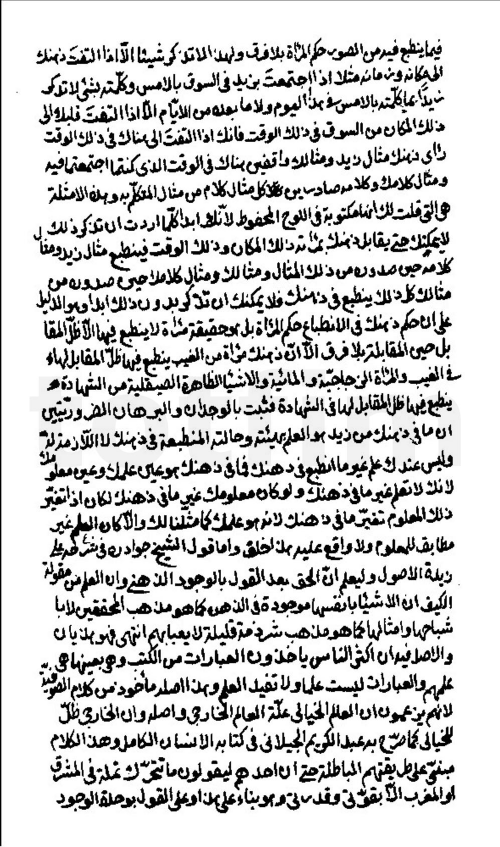 فيما ينطبع فيه من الصور حكم المرآة بلا فرق ولهذا لا تذكر شيئا الا اذا التفت ذهنك
الى مكانه وزمانه مثلا اذا اجتمعت بزيد في السوق بالامس وكلمته بشئ لا تذكر
زيدا بما كلمته بالامس في هذا اليوم ولا ما بعده من الايام الا اذا التفت قلبك الى
ذلك المكان من السوق في ذلك الوقت فانك اذا التفت الى هناك في ذلك الوقت
رأى ذهنك مثال زيد ومثالك واقفين هناك في الوقت الذي كنتما اجتمعتما فيه
ومثال كلامك وكلامه صادرين كل مثال كلام من مثال المتكلم به وهذه الامثلة
هي التي قلت لك انها مكتوبة في اللوح المحفوظ لانك ابدا كلما اردت ان تذكر ذلك
لا يمكنك حتى يقابل ذهنك بمرآته ذلك المكان وذلك الوقت فينطبع مثال زيد ومثال
كلامه حين صدوره من ذلك المثال ومثالك ومثال كلامك حين صدوره من
مثالك كل ذلك ينطبع في ذهنك فلا يمكنك ان تذكر بدون ذلك ابدا وهو الدليل
على ان حكم ذهنك في الانطباع حكم المرآة بل هو حقيقة مرآة لا ينطبع فيها الا ظل المقابل
بل حين المقابلة بلا فرق الا ان ذهنك مرآة من الغيب ينطبع فيها ظل المقابل لها
في الغيب والمرآة الزجاجية والمائية والاشياء الظاهرة الصيقلية من الشهادة
ينطبع فيها ظل المقابل لها في الشهادة فثبت بالوجدان والبرهان الضروريين
ان ما في ذهنك من زيد هو العلم بهيئته وحالته المنطبعة في ذهنك لا اللازمة له
وليس عندك علم غير ما انطبع في ذهنك فما في ذهنك هو عين علمك وعين معلومك
لانك لا تعلم غير ما في ذهنك ولو كان معلومك غير ما في ذهنك لكان اذا تغير
ذلك المعلوم تغير ما في ذهنك لانه هو علمك كما مثلنا لك والا كان العلم غير
مطابق للمعلوم ولا واقع عليه هذا خلف واما قول الشيخ جواد في شرحه على
زبدة الاصول وليعلم ان الحق بعد القول بالوجود الذهني وان العلم من مقولة
الكيف ان الاشياء بانفسها موجودة في الذهن كما هو مذهب المحققين لا با
شباحها وامثالها كما هو مذهب شرذمة قليلة لا يعبأ بهم انتهى فهو هذيان
والاصل فيه ان اكثر الناس يأخذون العبارات من الكتب وهي بعينها هي
علمهم والعبارات ليست علما ولا تفيد العلم وهذا اصله مأخوذ من كلام الصوفية
لانهم يزعمون ان العالم الخيالي علة العالم الخارجي واصله وان الخارجي ظل
للخيالي كما صرح به عبد الكريم الجيلاني في كتابه الانسان الكامل وهذا الكلام
مبني على طريقتهم الباطلة حتى ان احدهم ليقولون ما تتحرك نملة في المشرق
او المغرب الا بقوتي وقدرتي وهو بناء على هذا وعلى القول بوحدة الوجود